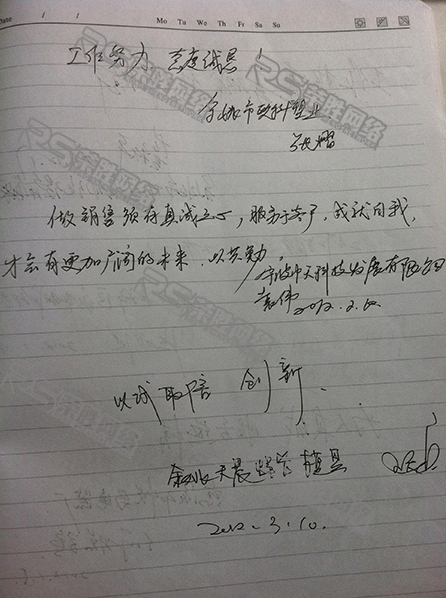 Date / / Mo Tu We Th Fr Sa Su
工作努力 态度诚恳!
余姚市 塑业
张
做销售须存真诚之心,服务于客户,成就自我,
才会有更加广阔的未来 以共勉
宁波 天科技发展有限公司
袁伟 2012.2.
以诚取信 创新
余姚天晨
2012.3.10.
RS 荣胜网络